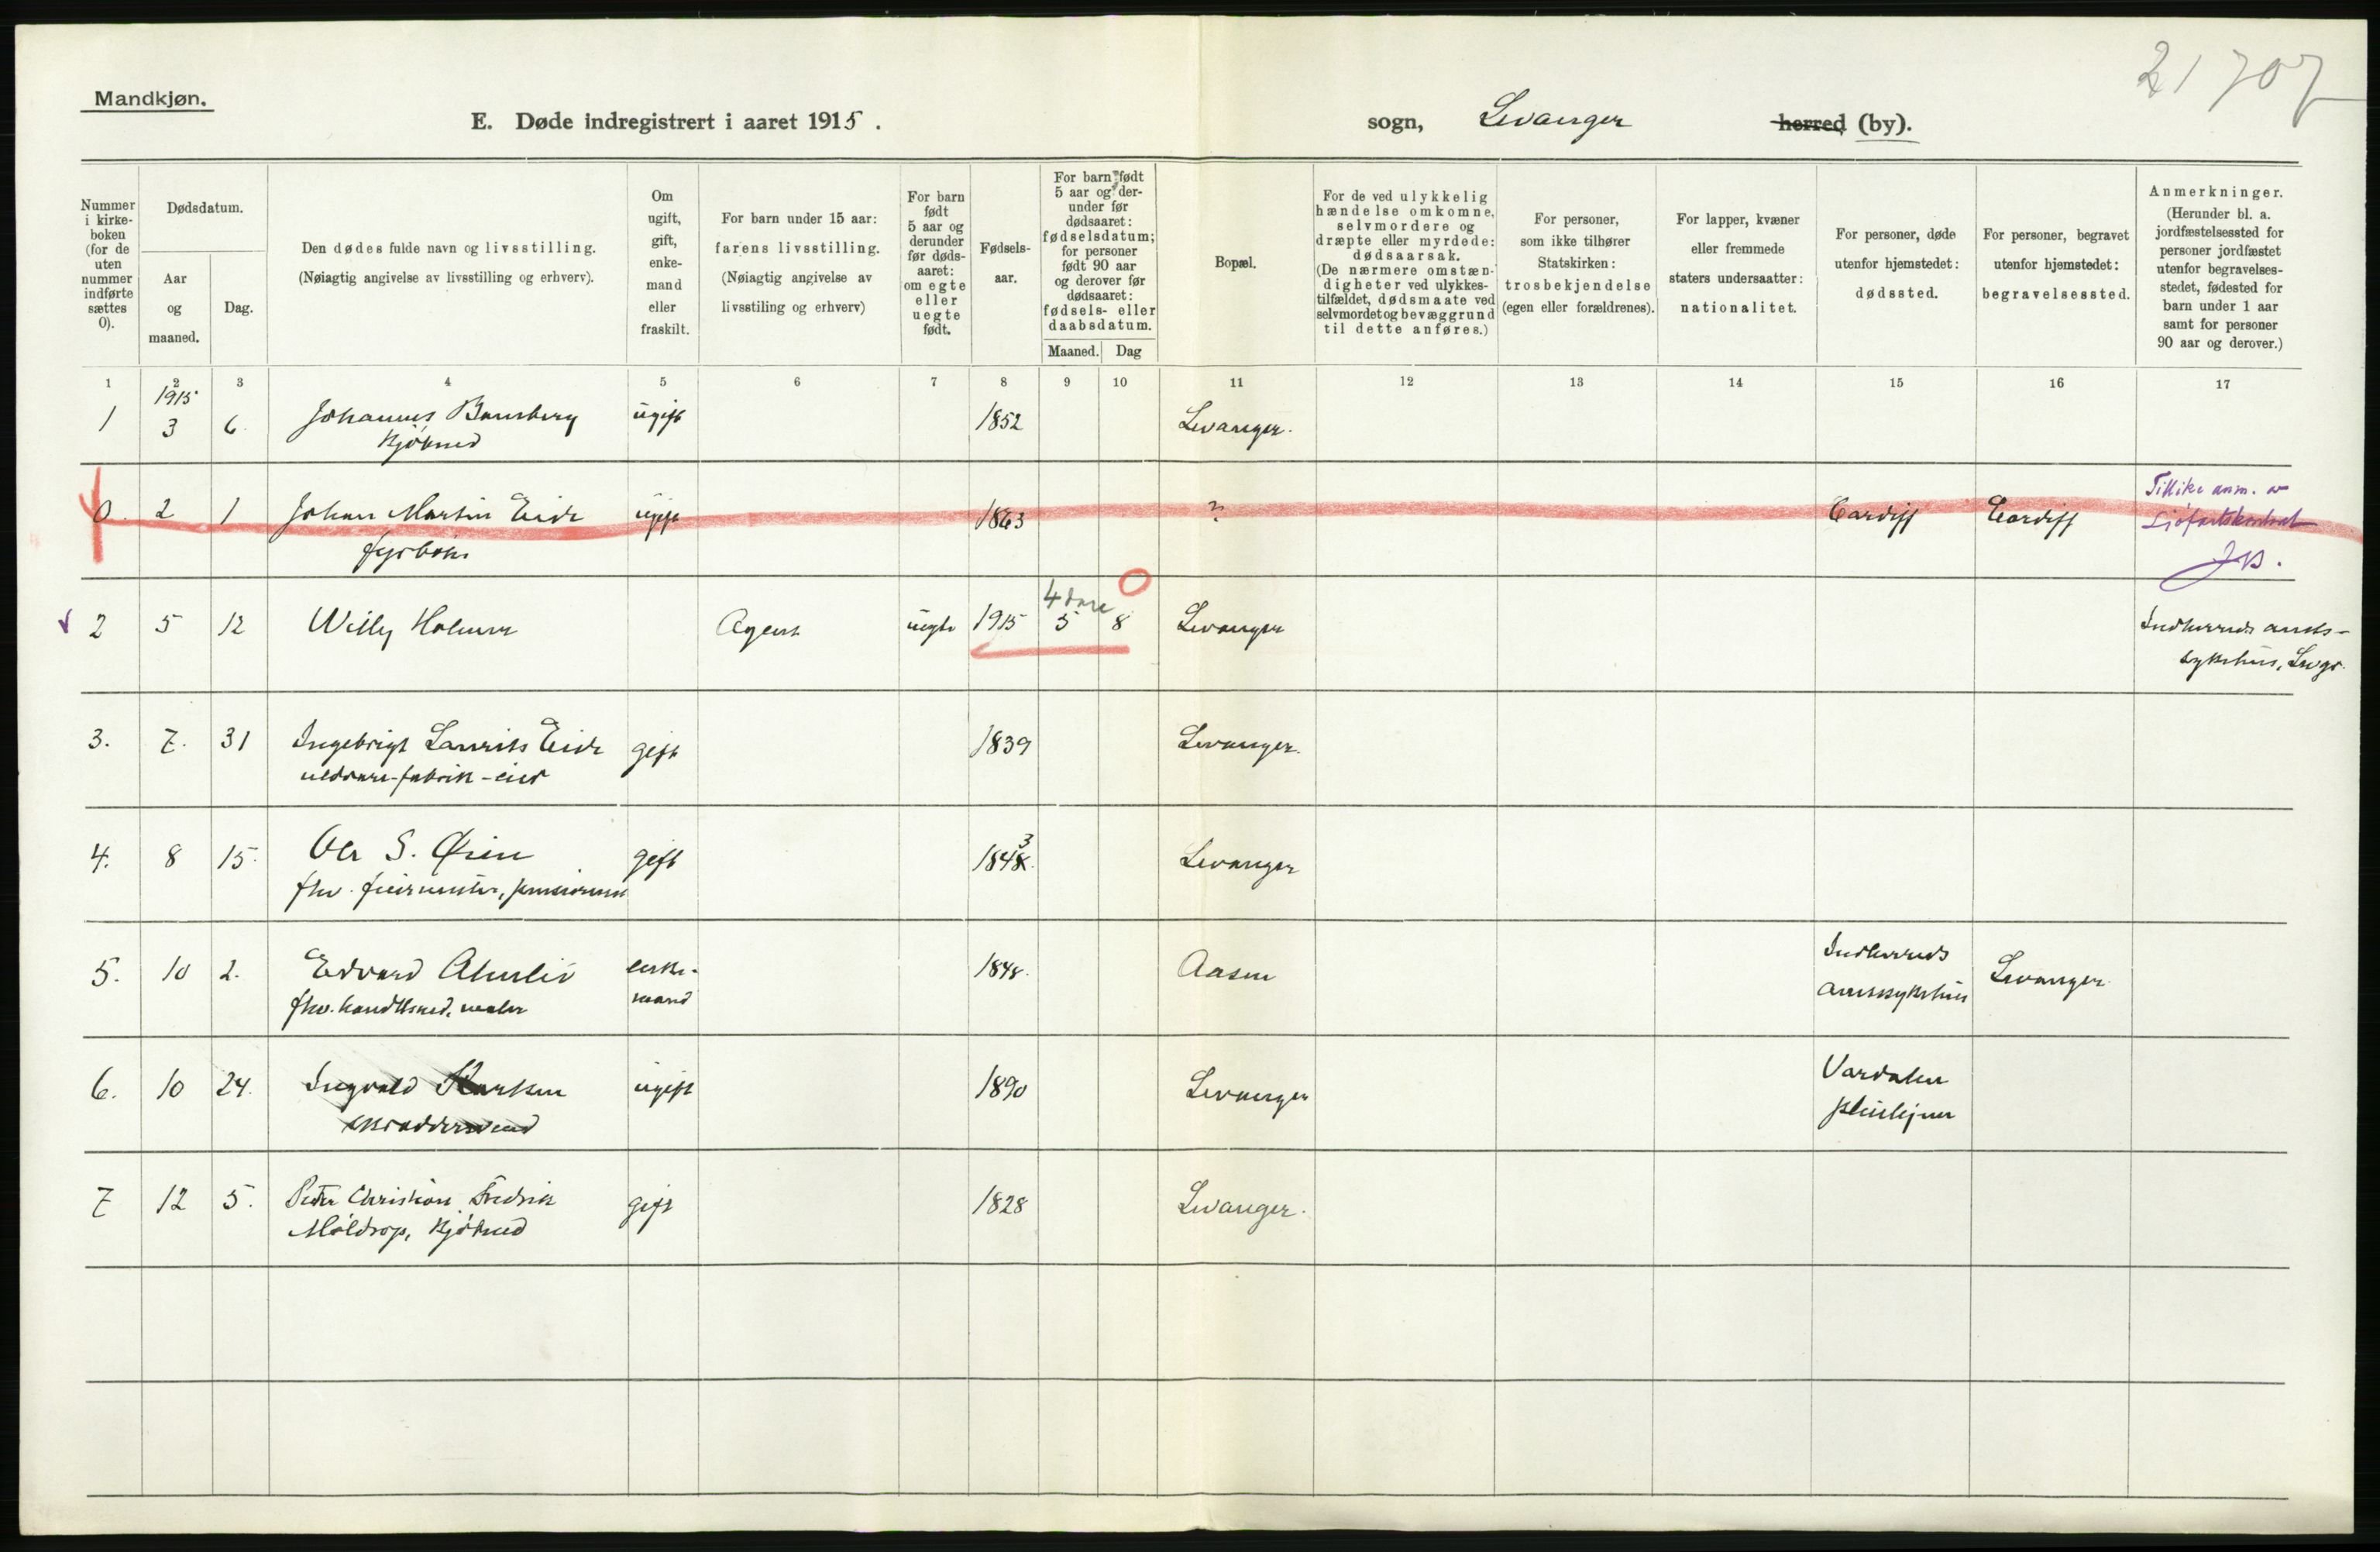 21707
Mandkjøn.
E. Døde indregistrert i aaret 1915.
sogn, Levanger herred (by).
Nummer i kirkeboken (for de uten nummer indførte sættes 0).
Dødsdatum.
Aar og maaned.
Dag.
Den dødes fulde navn og livsstilling.
(Nøiagtig angivelse av livsstilling og erhverv).
Om ugift, gift, enkemand eller fraskilt.
For barn under 15 aar:
farens livsstilling.
(Nøiagtig angivelse av
livsstiling og erhverv)
For barn født 5 aar og derunder før dødsaaret: om egte eller uegte født.
Fødselsaar.
For barn født 5 aar og derunder før dødsaaret: fødselsdatum; for personer født 90 aar og derover før dødsaaret: fødsels- eller daabsdatum.
Maaned. Dag
Bopæl.
For de ved ulykkelig hændelse omkomne, selvmordere og dræpte eller myrdede: dødsaarsak.
(De nærmere omstændigheter ved ulykkestilfældet, dødsmaate ved selvmordet og bevæggrund til dette anføres.)
For personer, som ikke tilhører Statskirken: trosbekjendelse (egen eller forældrenes).
For lapper, kvæner eller fremmede staters undersaatter: nationalitet.
For personer, døde utenfor hjemstedet: dødssted.
For personer, begravet utenfor hjemstedet: begravelsessted.
Anmerkninger.
(Herunder bl. a. jordfæstelsessted for personer jordfæstet utenfor begravelsesstedet, fødested for barn under 1 aar samt for personer 90 aar og derover.)
1 2 3 4 5 6 7 8 9 10 11 12 13 14 15 16 17
1915
1 3 6 Johannes ugift 1852 Levanger.
kjøbmd
0. 2 1 Johan Martin Eide ugift 1863 ? Cardiff Cardiff Tillike anm. av
fyrbøter Sjøfartskontoret
JB.
4 dage
2 5 12 Willy Holmen Agent uegte 1915 5 8 Levanger Indherreds amts-
sykehus, Levgr.
3. 7. 31 Ingebrigt Laurits Eide gift 1839 Levanger.
uldvare-fabrik-eier
3
4. 8 15. Ole S. Øien gift 1848. Levanger
fhv. feiermester, pensionist
5. 10 2. Edvard enke- 1848. Aasen Indherreds Levanger
fhv. handelsmd. maler mand amtssykehus
6. 10 24. Ingvald Karlsen ugift 1890 Levanger Værdalen
skræddersvend pleiehjem
7 12 5. Peter Christian Fredrik gift 1828 Levanger.
Møldrop, kjøbmd